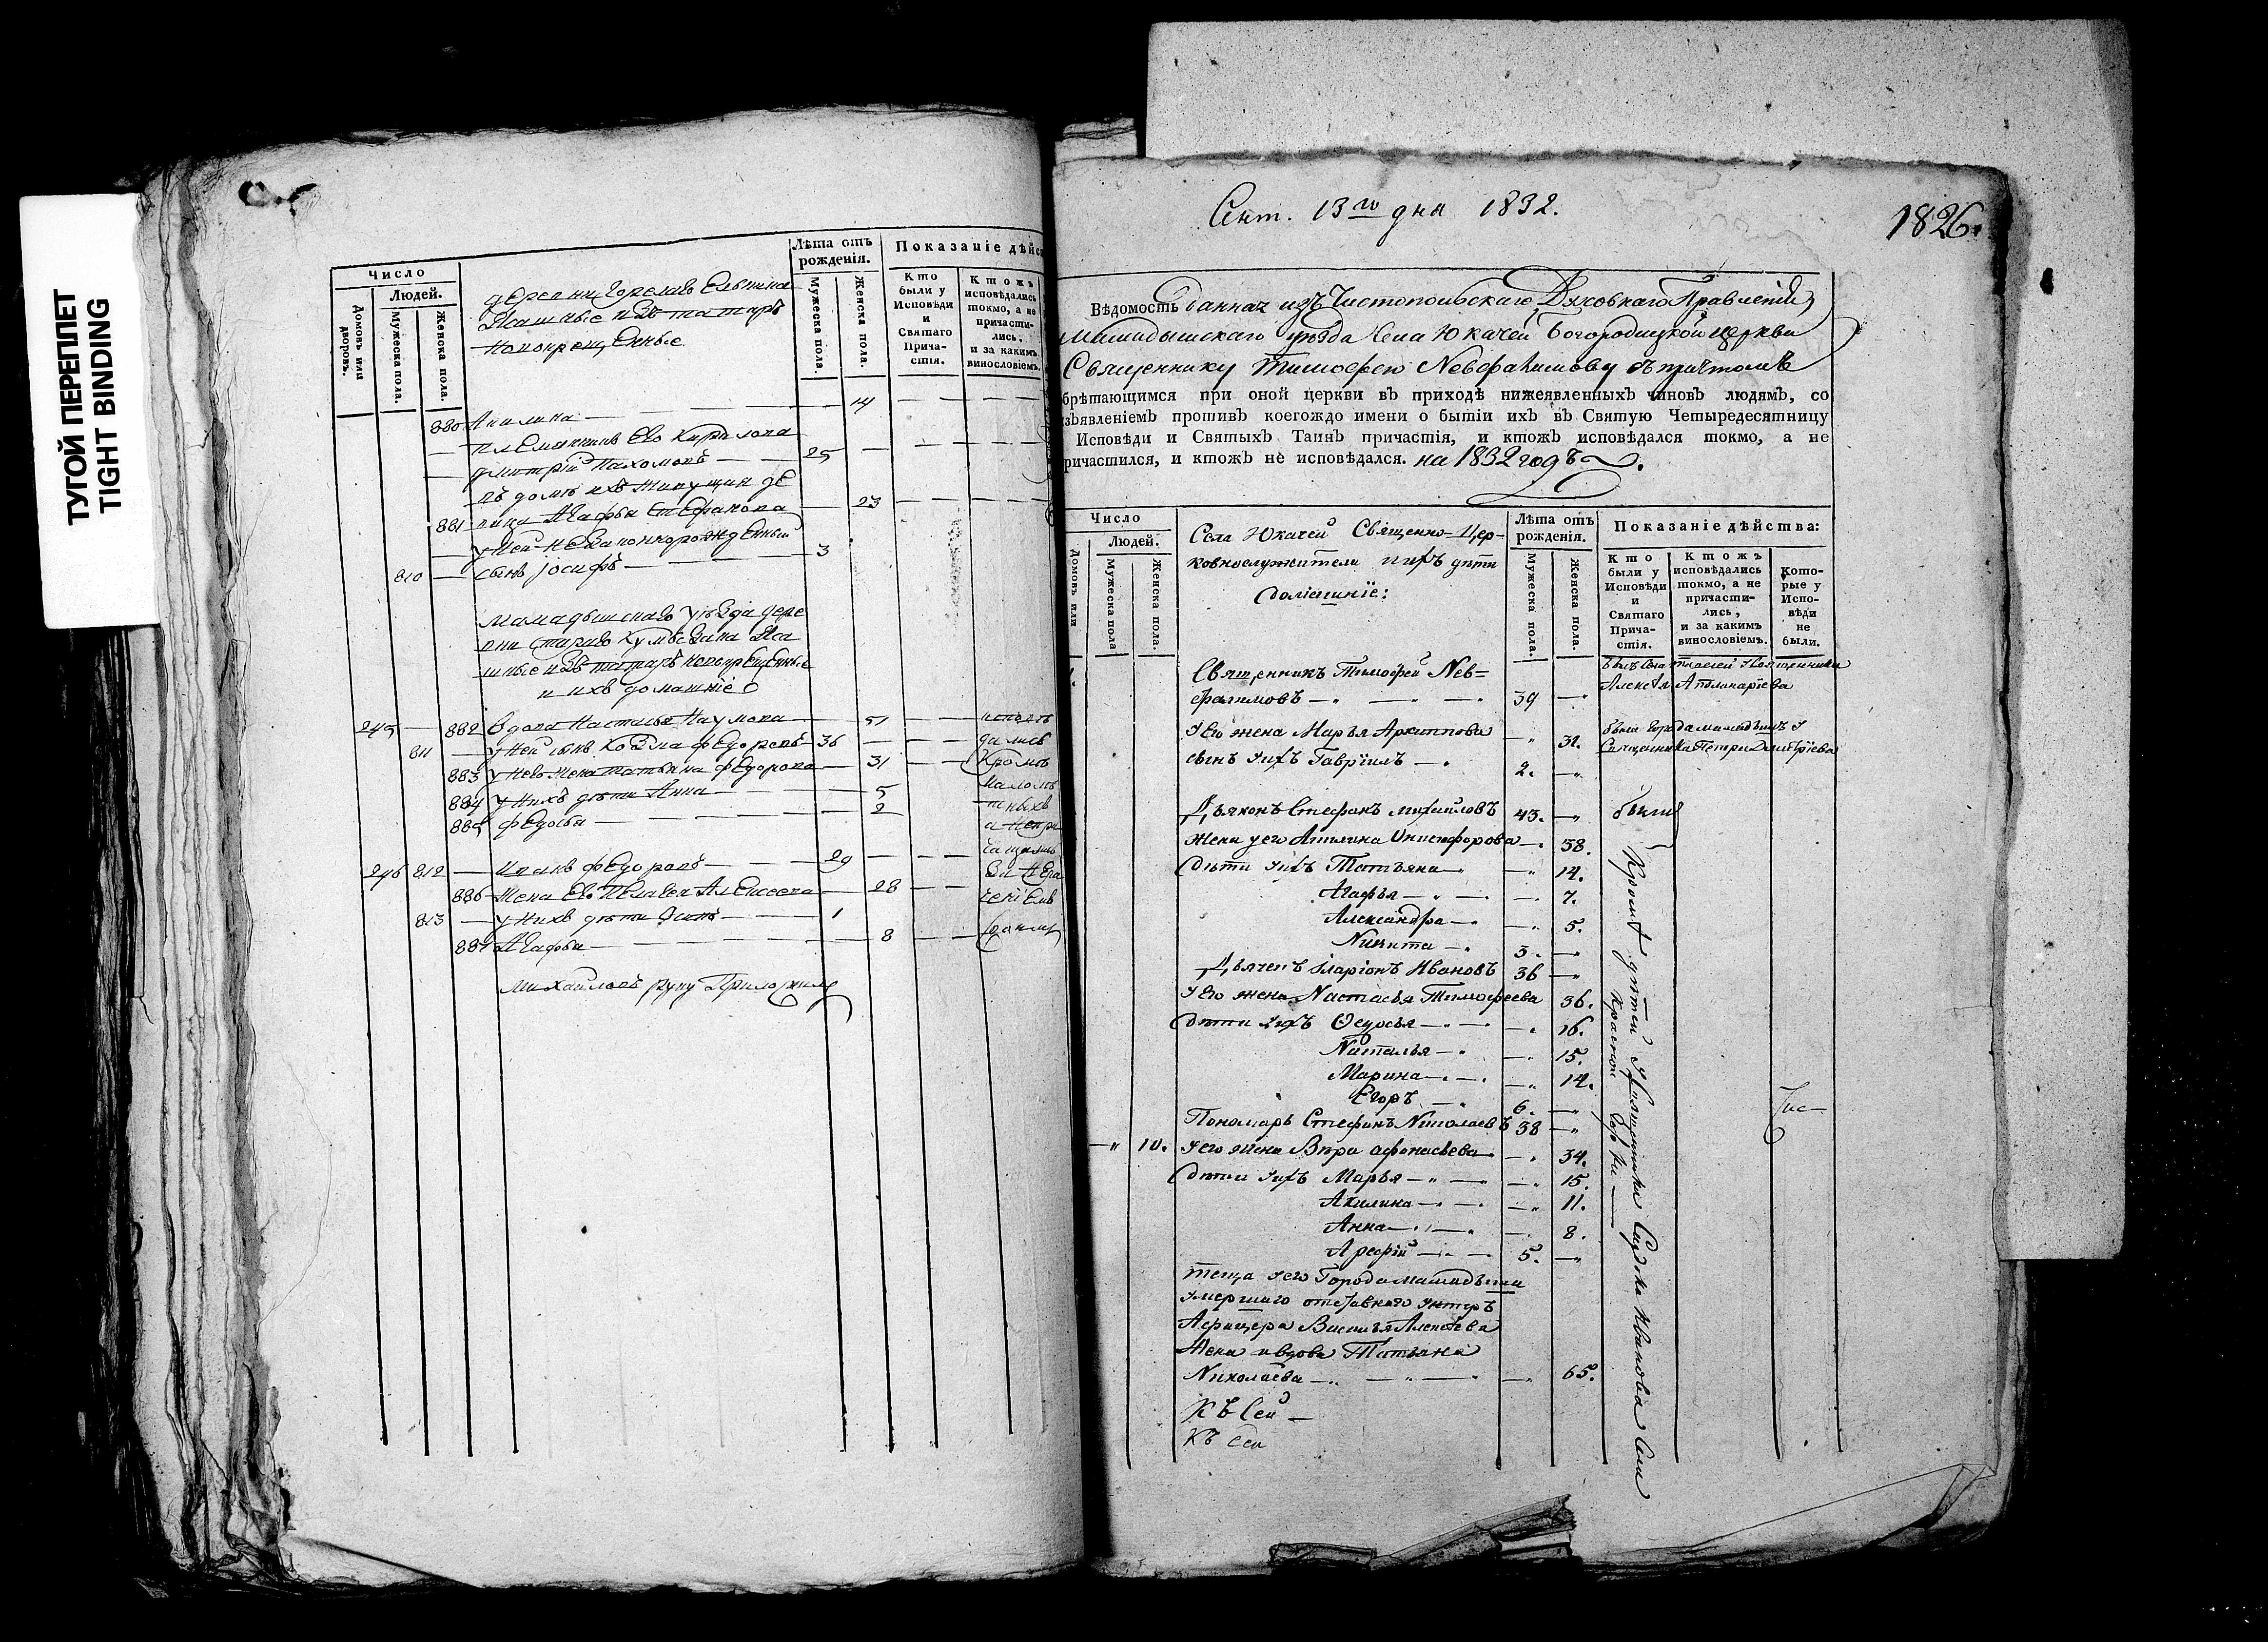 ТУГОЙ ПЕРЕПЛЕТ
TIGHT BINDING
Число
Людей.
Домовъ или дворовъ.
Мужеска пола.
Женска пола.
деревни
Ясашные изъ татаръ
новокрещенные
Лѣта отъ рожденія.
Мужеска пола.
Женска пола.
Показаніе дѣйс
Кто были у Исповѣди и Святаго Прича- стія.
Ктожъ исповѣдались токмо, а не причасти- лись, и за какимъ винословіемъ.
880 Акилина — 14
племянникъ Ево
Дмитрій Пахомовъ — 25
въ домѣ ихъ живущая де
881 вица Агафья Стефанова — 23
у Ней Незаконнорожденный
810 — сынъ Іосифъ — 3
мамадышскаго уѣзда дере
вни Стараго Кумъ Яса
шные изъ татаръ новокрещенные
и ихъ домашніе
245 — 882 Вдова Настасья Наумова — 51
811 — у Ней сынъ Козма Федоровъ — 36
883 у Нево Жена татьяна Федорова — 31
884 у Нихъ дѣти Анна — 5
885 Федосья — 2
исповѣ
дались
кромѣ
малолѣ
тныхъ
а непри
246 812 — Иванъ Федоровъ — 29
886 Жена Ево Пелагея Алексеева — 28
813 — у Нихъ дѣти Осипъ — 1
887 Агафья — 8
Михайловъ руку Приложилъ
Сент. 13го дня 1832.
1826.
Вѣдомость данная изъ Чистопольскаго Духовнаго Правленія
мамадышскаго уѣзда Села Юкачей Богородицкой церкви
Священнику Тимофею Невфалимову съ причтомъ
брѣтающимся при оной церкви въ приходѣ нижеявленныхъ чиновъ людямъ, со
зъявленіемъ противъ коегождо имени о бытіи ихъ въ Святую Четыредесятницу
Исповѣди и Святыхъ Таинъ причастія, и ктожъ исповѣдался токмо, а не
ричастился, и ктожъ не исповѣдался. на 1832 годъ.
Число
Людей.
Домовъ или
Мужеска пола
Женска пола.
Села Юкачей Священно-Цер-
ковнослужители ихъ дѣти
домашніе:
Лѣта отъ рожденія.
Мужеска пола.
Женска пола.
Показаніе дѣйства:
Кто были у Исповѣди и Святаго Прича- стія.
Ктожъ исповѣдались токмо, а не причасти- лись, и за какимъ винословіемъ.
Кото- рые у Испо- вѣди не были.
1.
Священникъ Тимофей Нев=
фалимовъ — 39
Алексѣя Аполинаріева
У Его жена Марья Архиппова — 31.
была города мамадыша у
Священника Петра Дмитріева
сынъ у ихъ Гавріилъ — 2.
Дьяконъ Стефанъ михайловъ 43. были
жена у его Акилина Онисифорова — 38.
Дѣти у ихъ Татьяна — 14.
Агафья — 7.
Александра — 5.
Никита — 3.
Дьячекъ Іларіонъ Ивановъ 36
У Его жена Настасья Тимофеева 36.
Дѣти у ихъ Ѳедосья — 16.
Наталья — 15.
Марина — 14.
Егоръ — 6.
Пономарь Стефанъ Николаевъ 38
10. У его жена Вѣра афонасьева — 34.
Дѣти у ихъ Марья — 15.
Акилина — 11.
Анна — 8.
Арефій — 5.
теща у его Города мамадыша
умершаго отставнаго унтеръ
Афицера Василья Алексѣева
жена вдова Татьяна
Николаева — 65.
Къ Сей —
Къ Сей
Кромѣ дѣтей у Священника Сидора Иванова Села
Красной Горки —